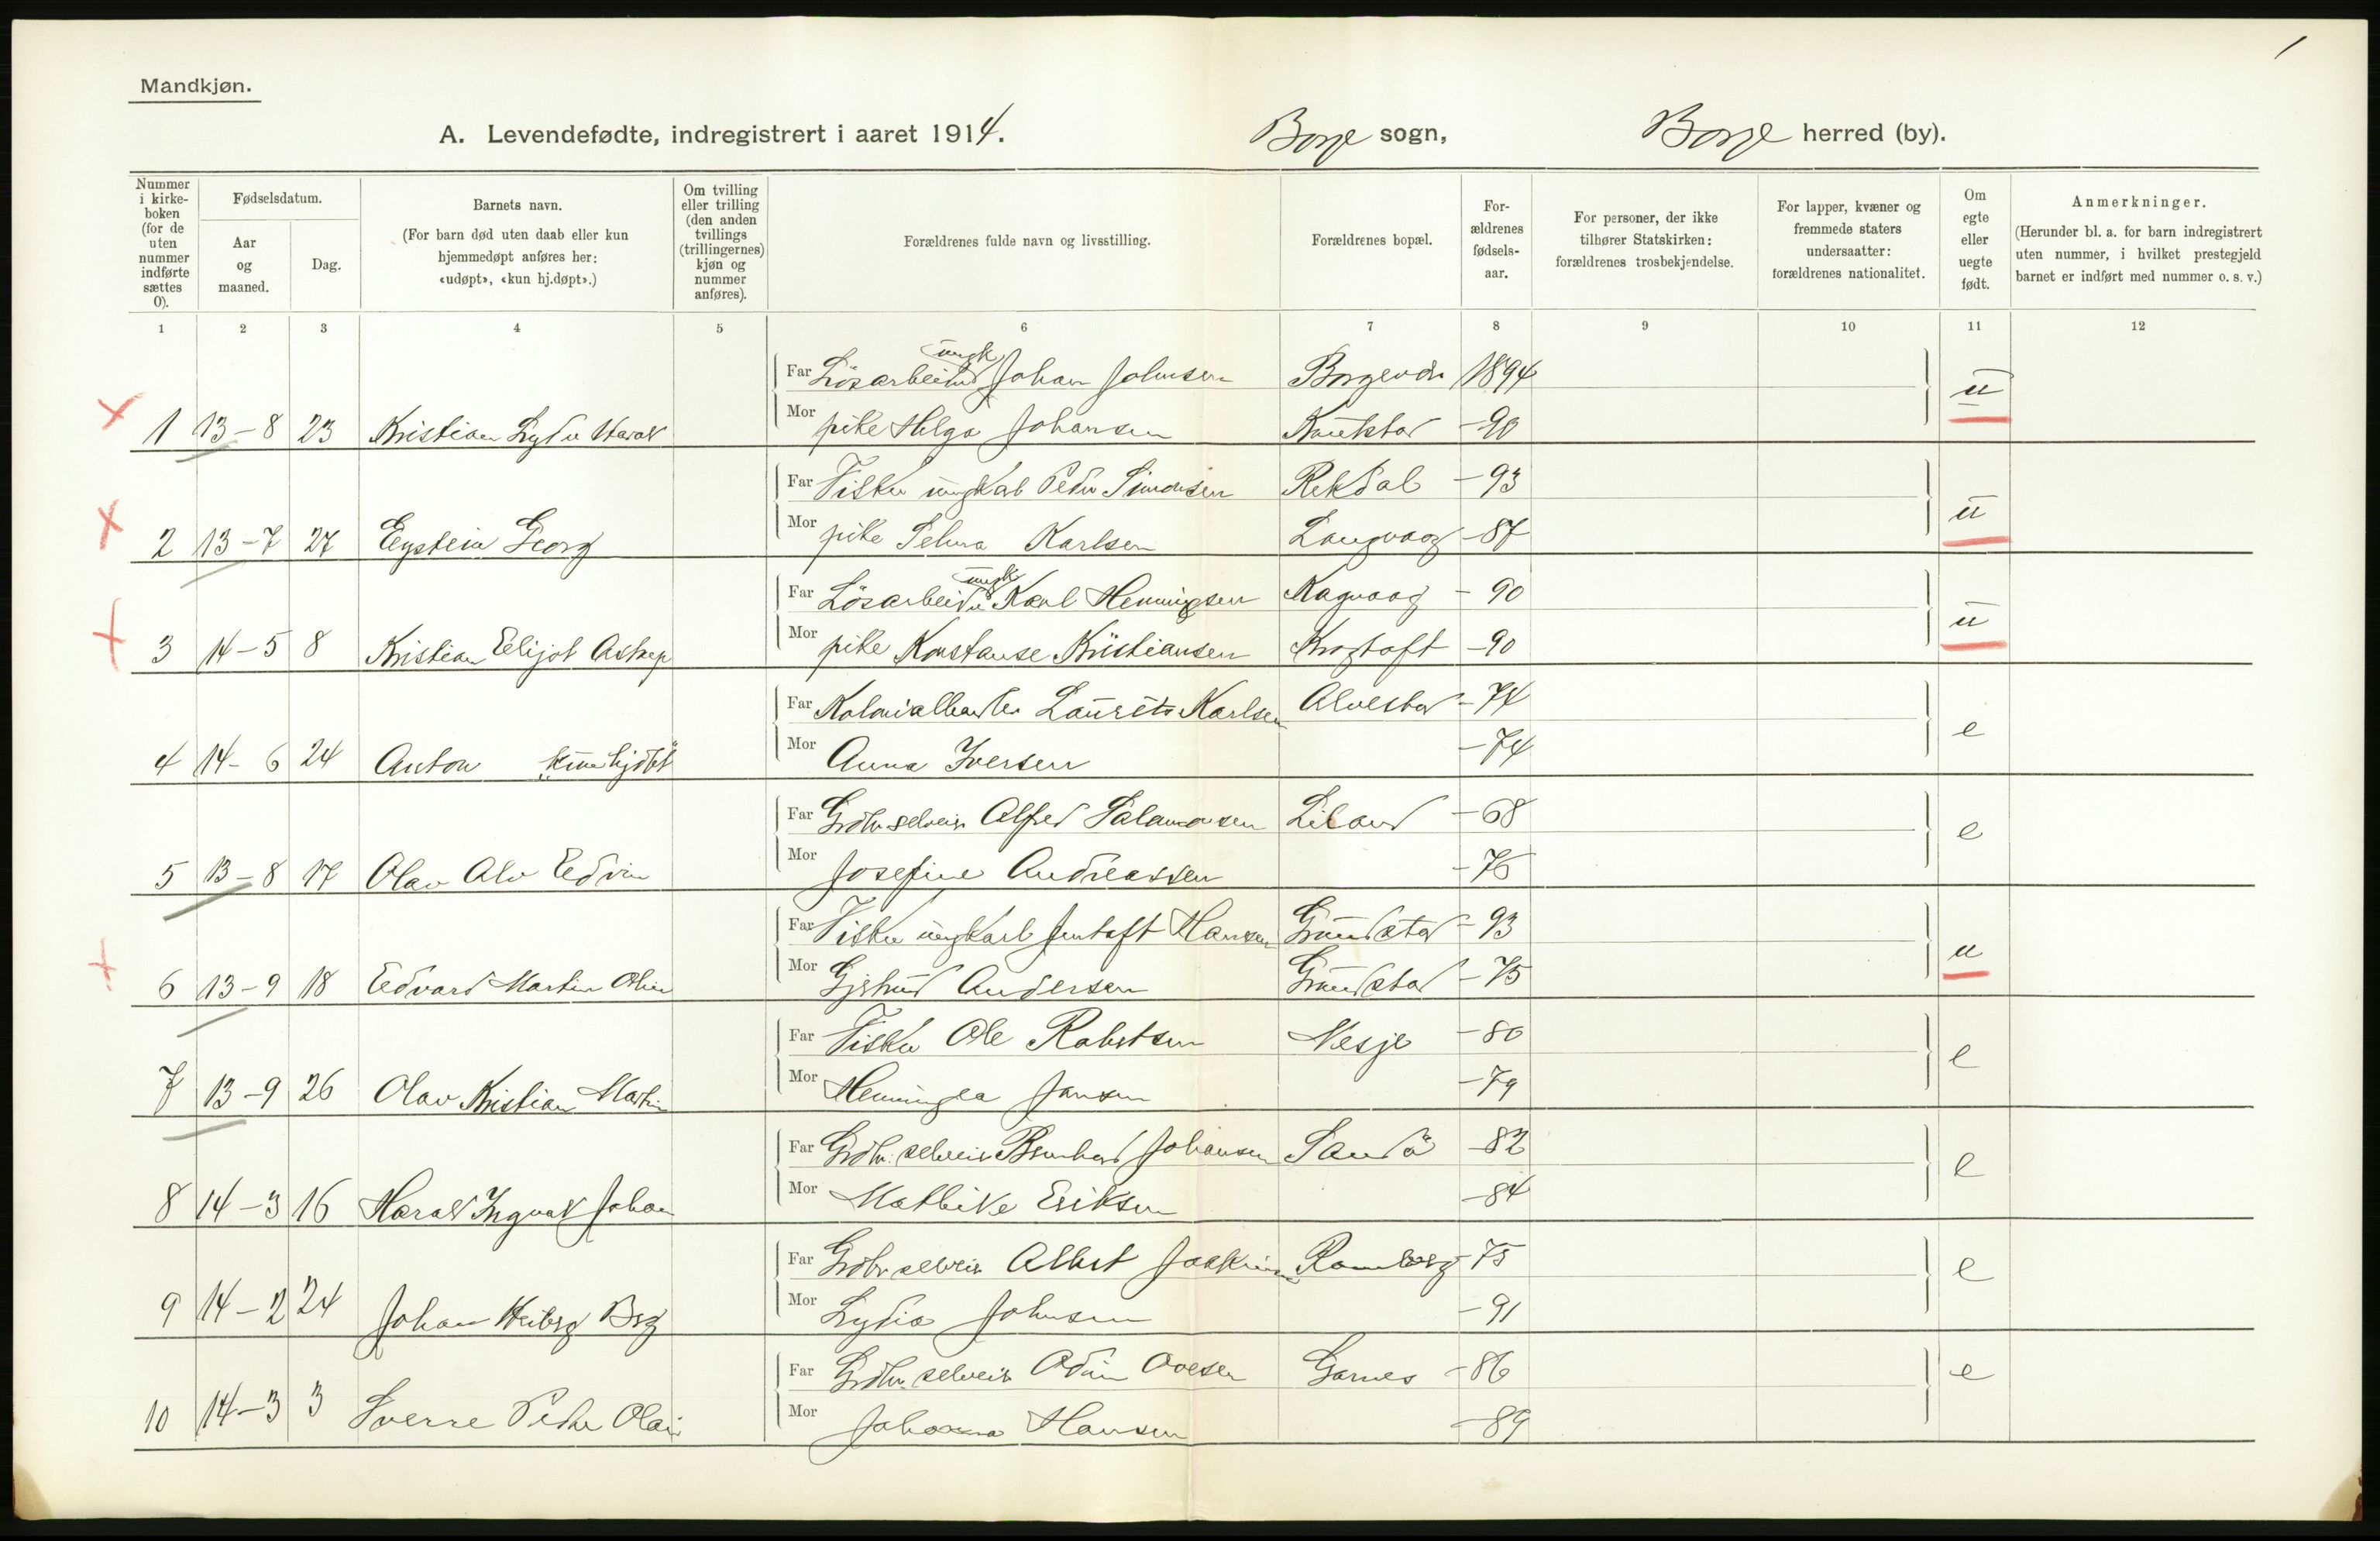 1
Mandkjøn.
A. Levendefødte, indregistrert i aaret 1914. Borge sogn, Borge herred (by).
Nummer i kirke-boken (for de uten nummer indførte sættes 0).
Fødselsdatum.
Aar og maaned.
Dag.
Barnets navn.
(For barn død uten daab eller kun hjemmedøpt anføres her: «udøpt», «kun hj.døpt».)
Om tvilling eller trilling (den anden tvillings (trillingernes) kjøn og nummer anføres).
Forældrenes fulde navn og livsstilling.
Forældrenes bopæl.
For-ældrenes fødsels-aar.
For personer, der ikke tilhører Statskirken: forældrenes trosbekjendelse.
For lapper, kvæner og fremmede staters undersaatter: forældrenes nationalitet.
Om egte eller uegte født.
Anmerkninger.
(Herunder bl. a. for barn indregistrert uten nummer, i hvilket prestegjeld barnet er indført med nummer o. s. v.)
1 2 3 4 5 6 7 8 9 10 11 12
Far Lösarbeider ungk Johan Johnsen 1894 u
1 13-8 23 Kristian Harald Mor pike Helga Johansen -90
Far Fisker ungkarl Peder Simonsen Rekdal -93 u
2 13-7 27 Eystein Georg Mor pike Selma Karlsen Langvaag -87
Far Lösarbeider ungk Karl Henningsen -90 u
3 14-5 8 Kristian Mor pike Konstanse Kristiansen Krogtoft -90
Far Laurits Karlsen Alvestad -74 e
4 14-6 24 Anton „kun hjdöbt" Mor Anna Iversen -74
Far Grdbr. selveier Alfred Salamonsen Liland -68 e
5 13-8 17 Olav Alv Edvin Mor Josefine Andreassen -76
Far Fisker ungkarl Jentoft Hansen Grundstad -93 u
6 13-9 18 Edvard Martin Mor Gjertrud Andersen Grundstad -75
Far Fisker Ole Robertsen Nesje -80 e
7 13-9 26 Olav Kristian Martin Mor Henningea Jansen -79
Far Grdbr. selveier Bernhard Johansen Sandö -82 e
8 14-3 16 Harald Ingvald Johan Mor Mathilde Eriksen -84
Far Grdbr selveier Albert Ramberg -75 e
9 14-2 24 Johan Heiberg Berg Mor Lydia Johnsen -91
Far Grdbr. selveier Odin Ovesen Garnes -86 e
10 14-3 3 Sverre Peder Olai Mor Johanna Hansen -89